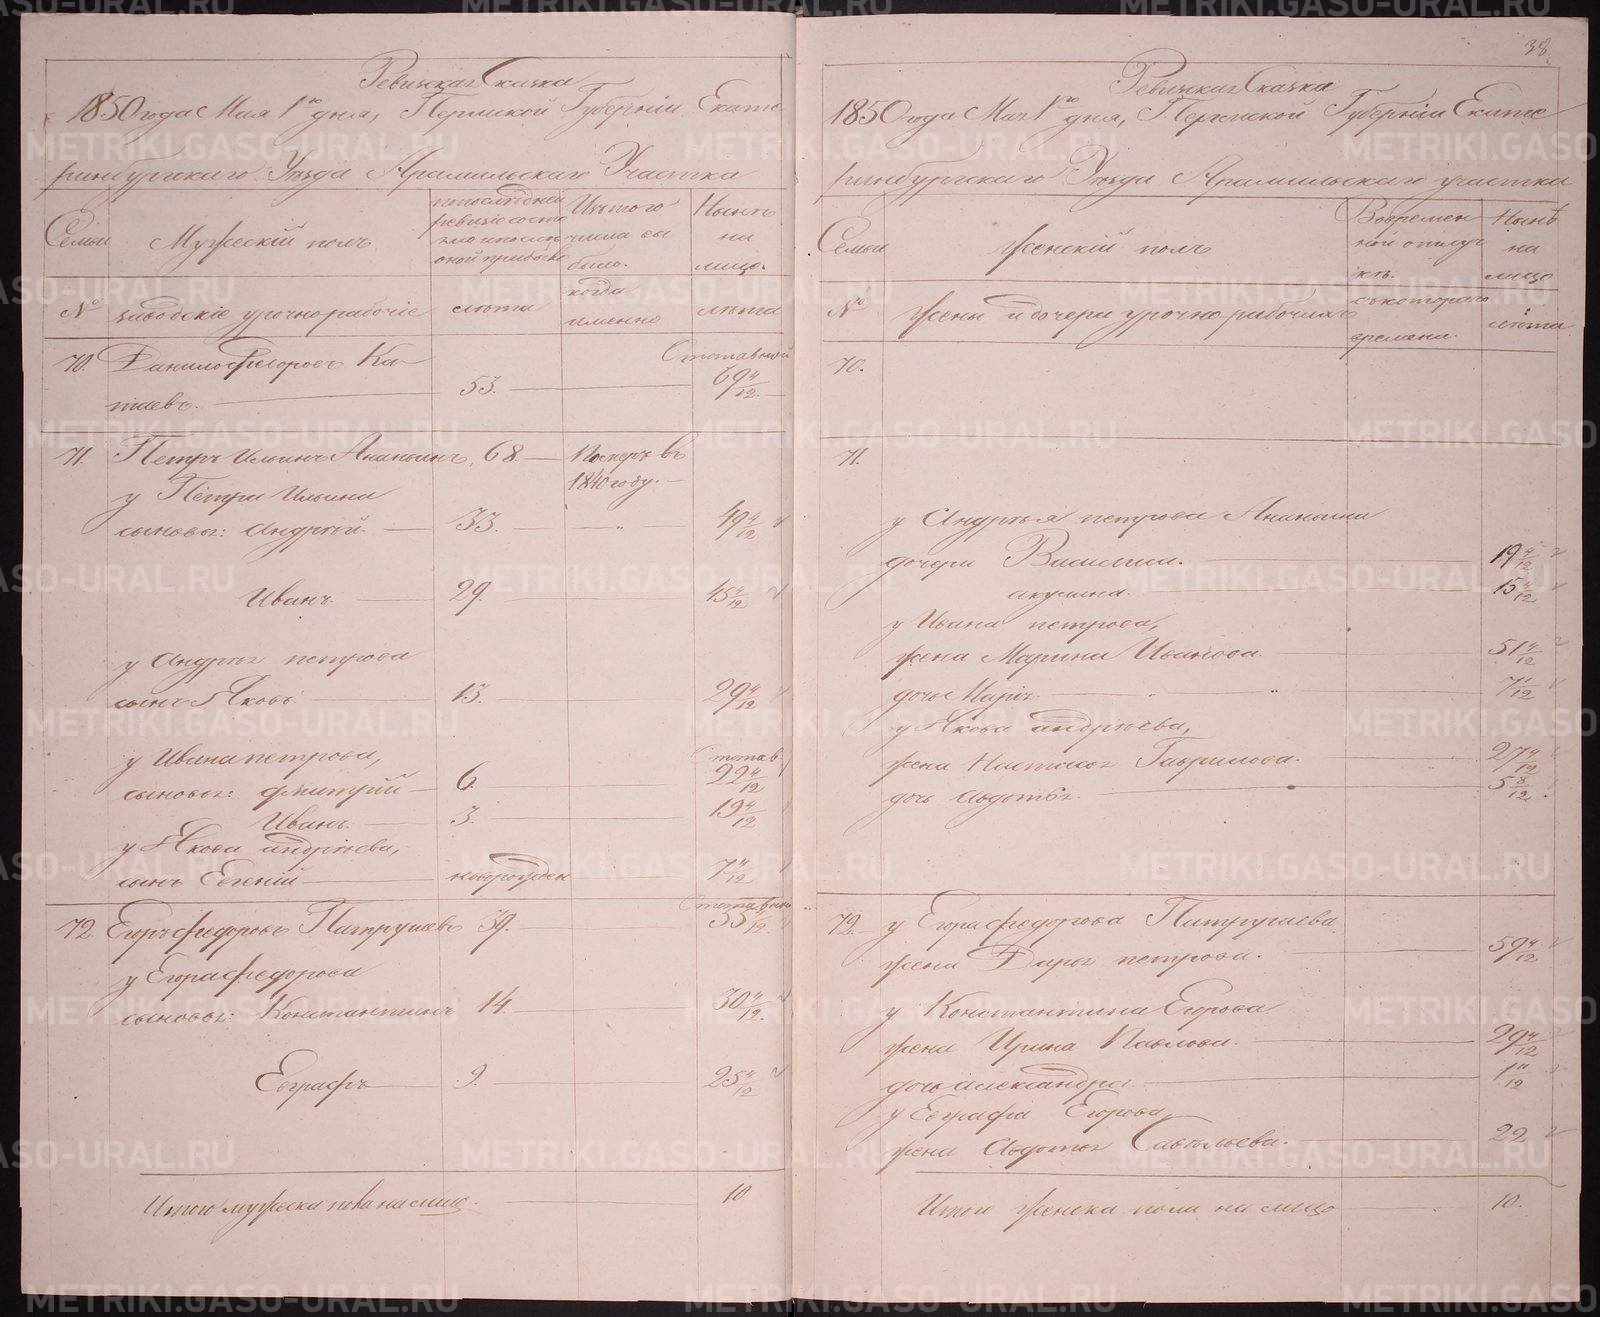 Ревизская Сказка
1850 года Мая 1го дня, Пермской Губерніи Екате
ринбургскаго Уезда Арамильскаго Участка
Семьи
Мужескій полъ
по последней
ревизіи состо
яло и после
оной прибыло
Изъ того
числа вы
было.
Ныне
на
лицо.
№
заводскіе урочнорабочіе
лета
когда
именно
лета
70.
Данило Федоровъ Ка-
таевъ.
53.
Отставной
69 4/12
71.
Петръ Ильинъ Ананьинъ,
68.
Померъ въ
1840 году.
у Петра Ильина
сыновья: Андрей.
33.
49 4/12
Иванъ.
29.
45 4/12
у Андрея петрова
сынъ Яковъ.
13.
29 4/12
у Ивана петрова,
сыновья: Дмитрій
6.
отстав
22 4/12
Иванъ.
3.
19 4/12
у Якова андреева,
сынъ Евгеній
новорожден
7 4/12
72.
Егоръ Федоровъ Патрушевъ
39.
Отставной
55 4/12
у Егора Федорова
сыновья: Константинъ
14.
30 4/12
Евграфъ
9.
25 4/12
Итого мужеска пола на лицо.
10
38.
Ревизская Сказка
1850 года Мая 1го дня, Пермской Губерніи Екате
ринбургскаго Уезда Арамильскаго участка
Семьи
Женскій полъ
Во времен
ной отлуч
ке.
Ныне
на
лицо
№
Жены и дочери урочно рабочихъ
съ котораго
времени.
лета
70.
71.
у Андрея петрова Ананьина
дочери Василиса.
19 4/12
акулина.
15 4/12
у Ивана петрова,
жена Марина Иванова.
51 4/12
дочь Марія.
у Якова андреева,
жена Наталья Гаврилова.
27 4/12
дочь Авдотья.
5 8/12
72.
у Егора Федорова Патрушева
жена Дарья петрова.
59 4/12
у Константина Егорова
жена Ирина Павлова.
29 4/12
дочь александра.
1 11/12
у Евграфа Егорова,
жена Авдотья Савельева.
22
Итого женска пола на лицо
10.
METRIKI.GASO-URAL.RU